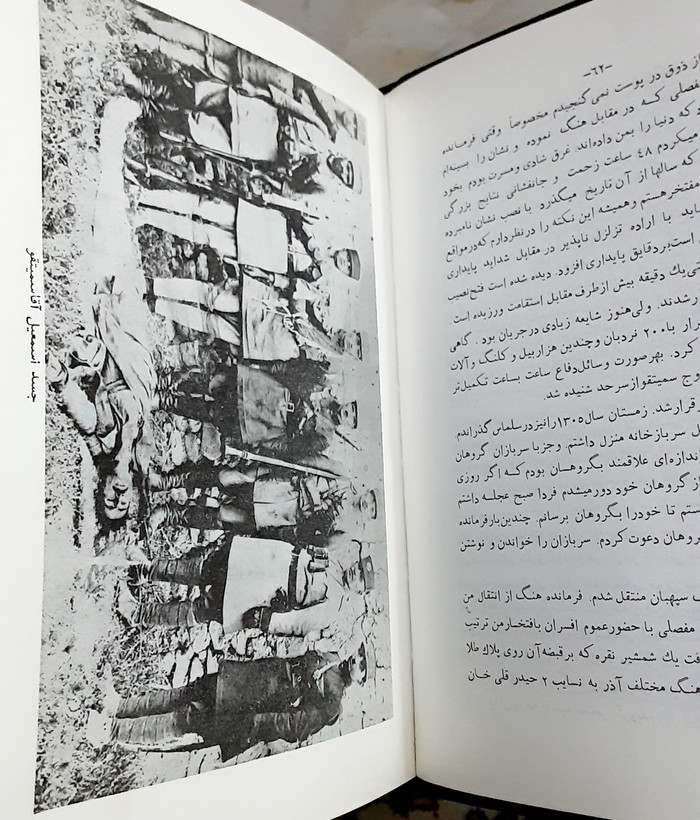 -٦٢-
از ذوق در پوست نمی گنجیدم مخصوصاً وقتی فرمانده
مفصلی که در مقابل هنگ نموده و نشان را بسینه‌ام
که دنیا را بمن داده‌اند. غرق شادی ومسرت بودم بخود
میکردم ٤٨ ساعت زحمت و جانفشانی نتایج بزرگی
که سالها از آن تاریخ میگذرد با نصب نشان نامبرده
مفتخر هستم وهمیشه این نکته را درنظردارم که‌درمواقع
باید با اراده تزلزل ناپذیر در مقابل شداید پایداری
است‌بردقایق پایداری افزود. دیده شده است فتح‌نصیب
یك دقیقه بیش ازطرف مقابل استقامت ورزیده است.
شدند. ولی‌هنوز شایعه زیادی درجریان بود. گاهی
با ٢٠٠ نردبان وچندین هزاربیل و کلنگ وآلات
کرد. بهرصورت وسائل‌دفاع ساعت بساعت تکمیل‌تر
سمیتقوازسرحد شنیده شد.
قرارشد. زمستان سال ١٣٠٥رانیزدرسلماس گذراندم
سربازخانه منزل داشتم وجزبا سربازان گروهان
اندازه‌ای علاقمند بگروهان بودم‌که اگر روزی
از گروهان خود دورمیشدم فردا صبح عجله داشتم
تا خودرا بگروهان برسانم. چندین‌بارفرمانده
گروهان دعوت کردم. سربازان را خواندن و نوشتن
سپهبان منتقل شدم. فرمانده هنگ از انتقال من
مفصلی با حضورعموم افسران بافتخارمن ترتیب
یك شمشیر نقره که برقبضه‌آن روی پلاك طلا
هنگ مختلف آذر به نسایب ٢ حیدر قلی خان
جسد اسمعیل آقاسمیتقو